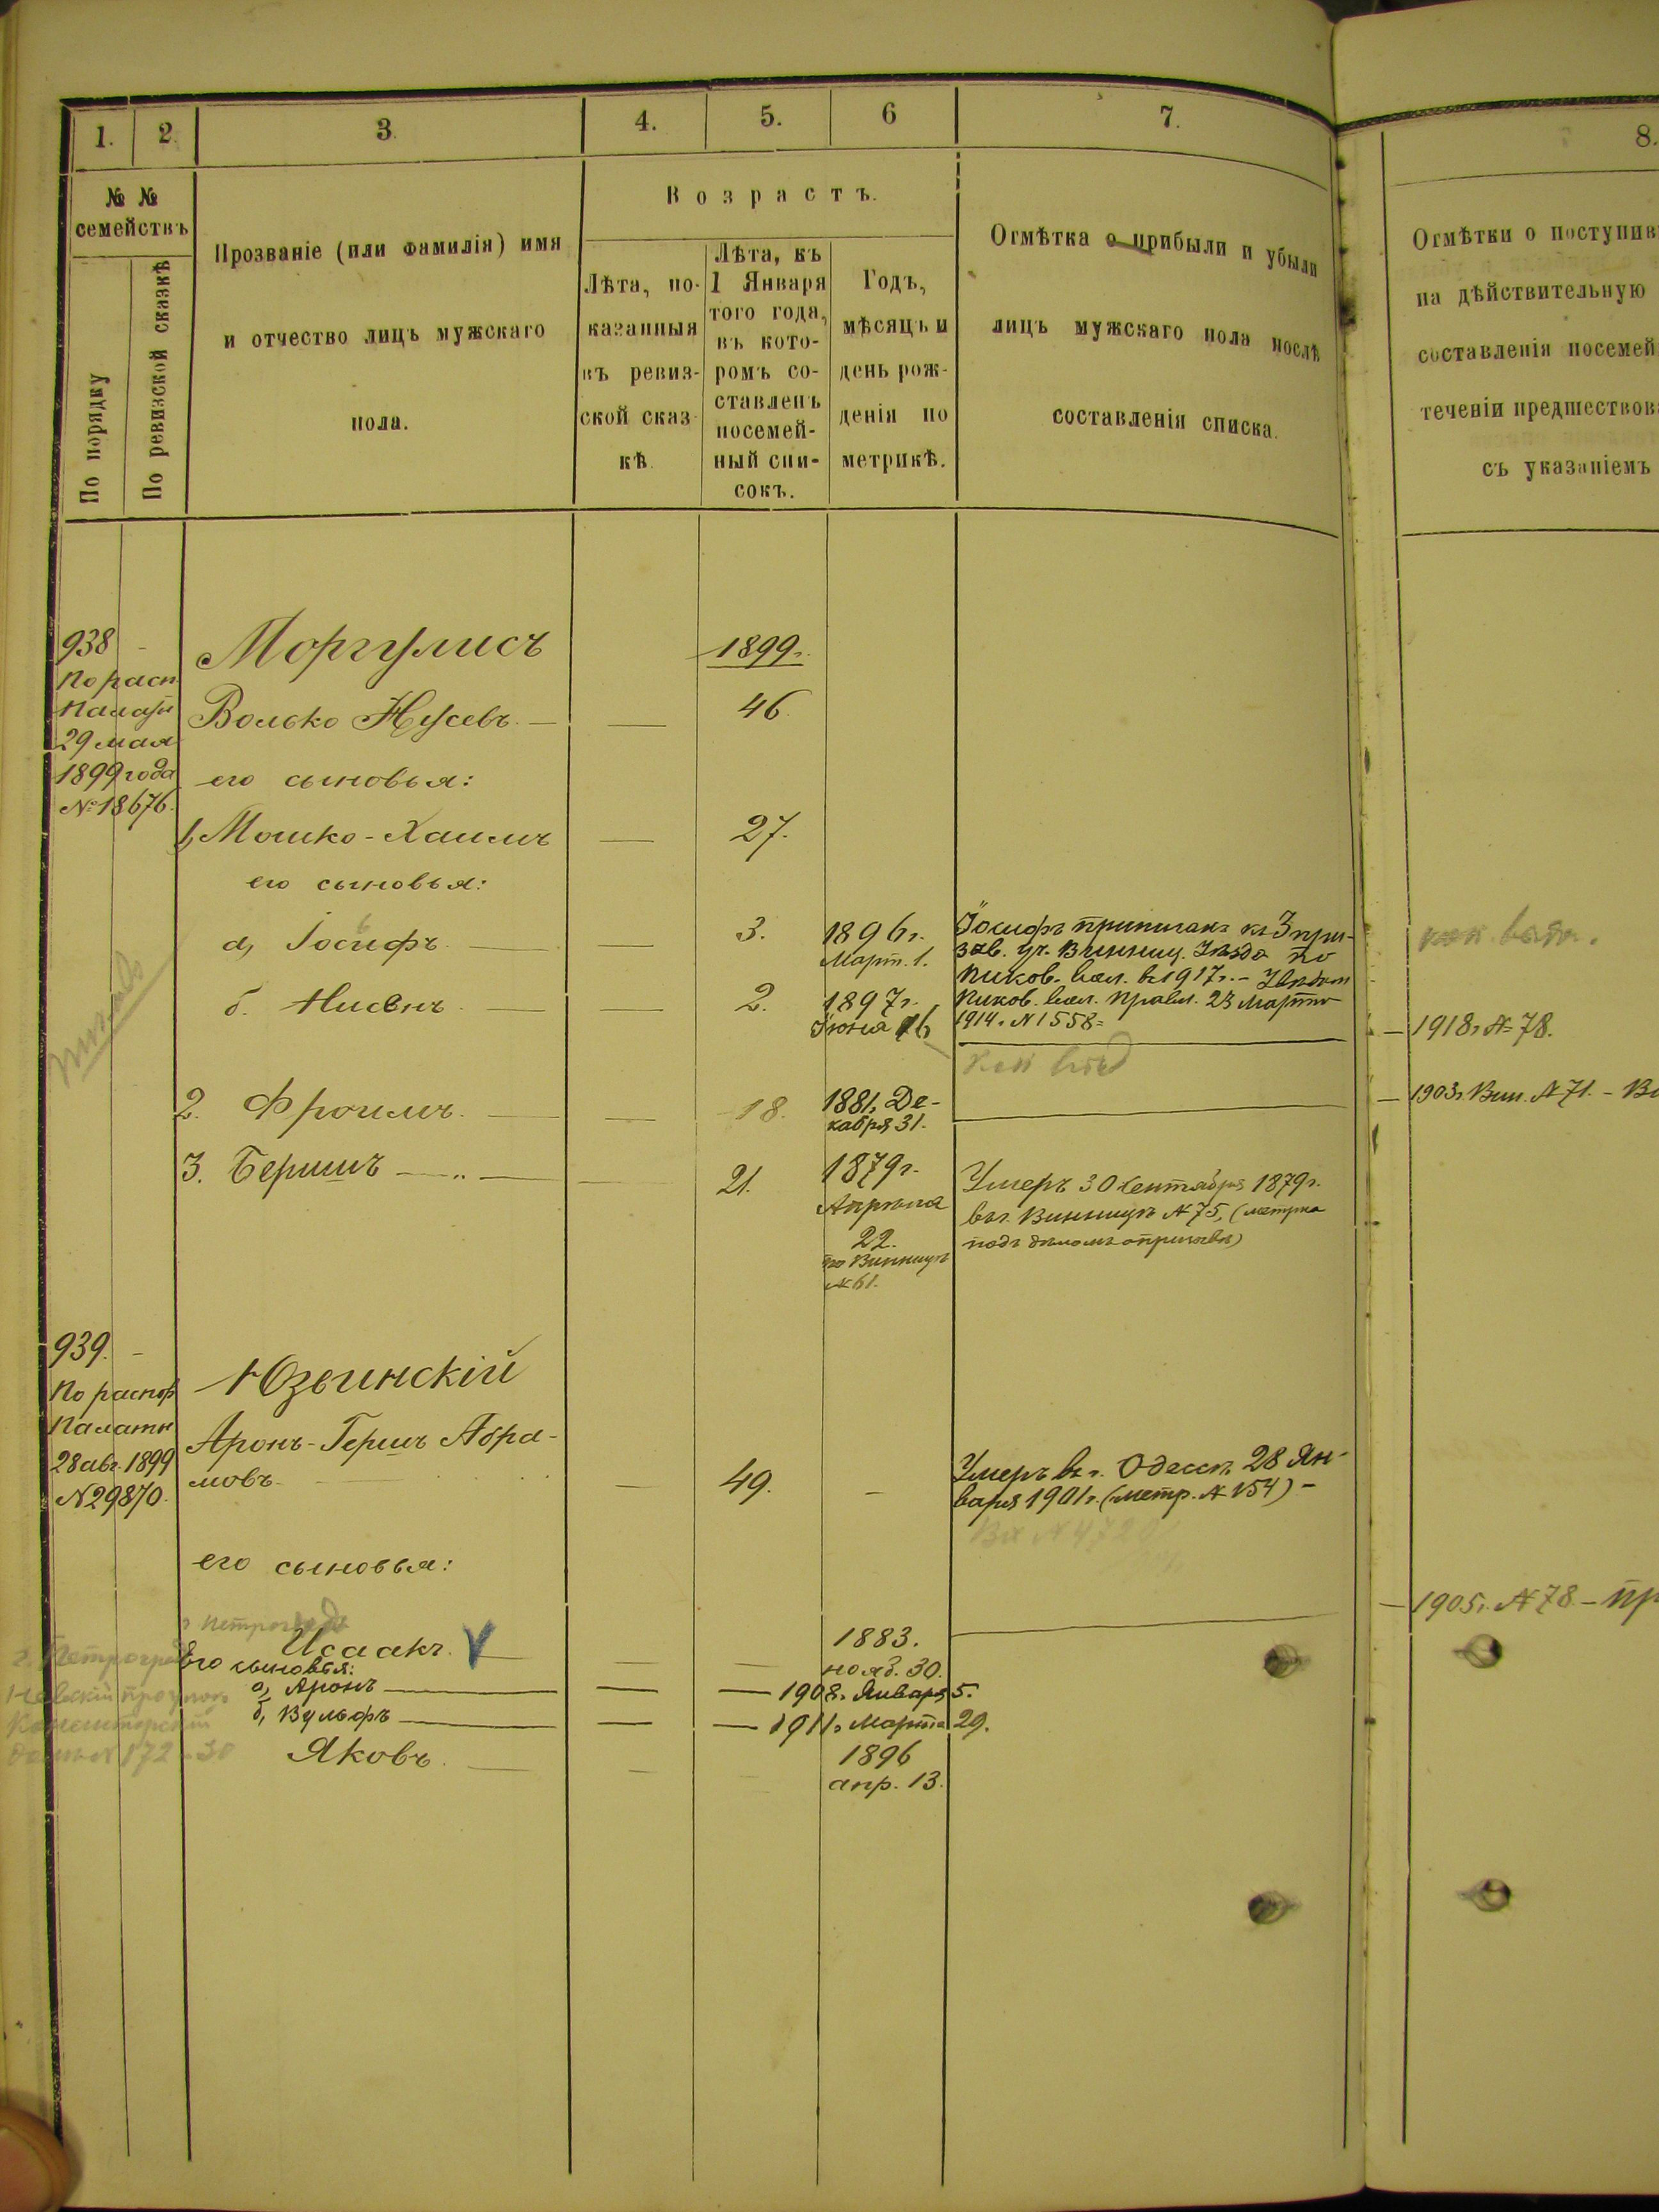 1. 2. 3. 4. 5. 6 7. 8.
№ №
семействъ
По порядку
По ревизской сказкѣ
Прозваніе (или фамилія) имя
и отчество лицъ мужскаго
пола.
Возрастъ.
Лѣта, по-
казанныя
въ ревиз-
ской сказ-
кѣ.
Лѣта, къ
1 Января
того года,
въ кото-
ромъ со-
ставленъ
посемей-
ный спи-
сокъ.
Годъ,
мѣсяцъ и
день рож-
денія по
метрикѣ.
Отмѣтка о прибыли и убыли
лицъ мужскаго пола послѣ
составленія списка.
Отмѣтки о поступив
на дѣйствительную
составленія посемей
теченіи предшествов
съ указаніемъ
938 -
По расп.
Палаты
29 мая
1899 года
№ 18676.
Моргулисъ 1899г.
Волько Нусевъ — — 46.
его сыновья:
1, Мошко-Хаимъ — 27.
его сыновья:
а, Іосифъ — — 3. 1896г.
Март. 1.
Іосифъ приписанъ къ 3 при-
зыв. уч. Винниц. Уѣзда по
Пиков. вол. въ 1917г. -
Пиков. вол. правл. 23 Марта
1914г. № 1558 =
б. Нисенъ — — 2. 1897г.
Іюня 16
— 1918г. № 78.
2. Фроимъ — — 18. 1881г. Де-
кабря 31.
— 1903г. Вин. № 71. -
3. Бершъ — „ — 21. 1879г.
Апрѣля
22.
по Винницѣ
№ 61.
Умеръ 30 Сентября 1879г.
въ г. Винницѣ № 75, (метрика
подъ дѣломъ о припискѣ)
939. -
По распор.
Палаты
28 авг. 1899
№ 29870.
Юзвинскій
Аронъ-Гершъ Абра-
мовъ. — — 49. —
Умеръ въ г. Одессѣ 28 Ян-
варя 1901г. (метр. № 154) -
Вх № 4720
его сыновья:
— 1905г. № 78 - пр
г. Петроградъ
Исаакъ. V — — 1883.
нояб. 30.
Его сыновья:
а, Аронъ — — — 1908г. Января 5.
б, Вульфъ — — — 1911г. Марта 29.
Яковъ. — — 1896
апр. 13.
г. Петроградъ
Невскій